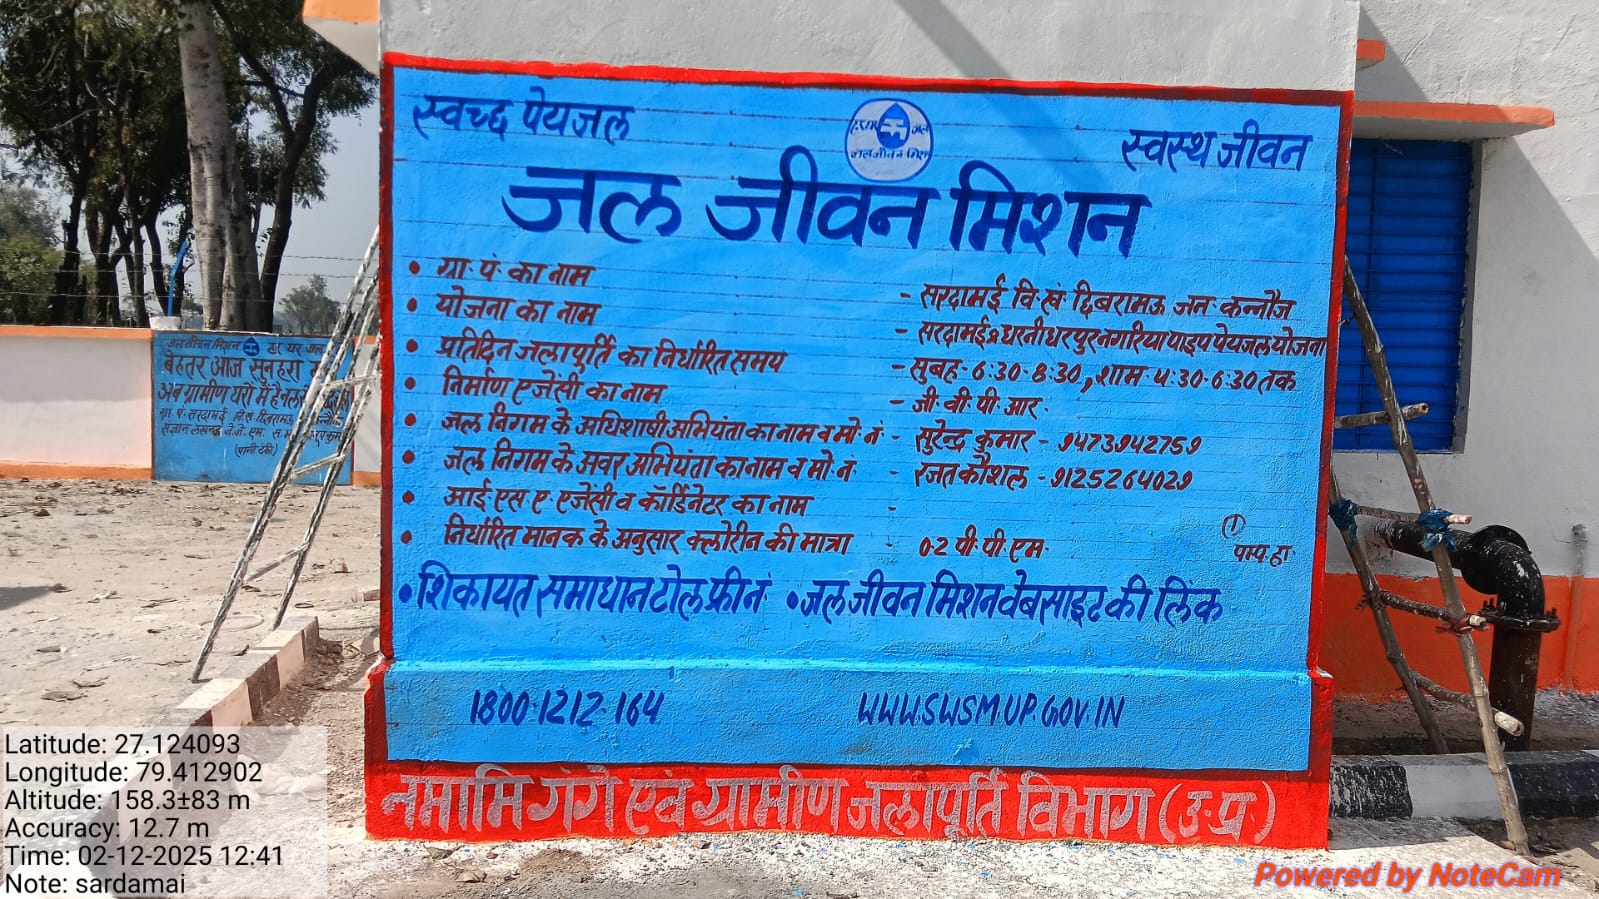 स्वच्छ पेयजल
हर घर जल
जल जीवन मिशन
स्वस्थ जीवन
जल जीवन मिशन
• ग्रा. पं. का नाम - सरदामई वि. खं. छिबरामऊ जन. कन्नौज
• योजना का नाम - सरदामई & धरनीधरपुर नगरिया पाइप पेयजल योजना
• प्रतिदिन जलापूर्ति का निर्धारित समय - सुबह - 6:30 - 8:30, शाम - 4:30 - 6:30 तक
• निर्माण एजेंसी का नाम - जी. वी. पी. आर.
• जल निगम के अधिशाषी अभियंता का नाम व मो. नं. - सुरेन्द्र कुमार - 9473942759
• जल निगम के अवर अभियंता का नाम व मो. नं. - रजत कौशल - 9125264029
• आई एस ए एजेंसी व कॉर्डिनेटर का नाम -
• निर्धारित मानक के अनुसार क्लोरीन की मात्रा - 0.2 पी. पी. एम.
①
पम्प हा
• शिकायत समाधान टोल फ्री नं. • जल जीवन मिशन वेबसाइट की लिंक
1800-1212-164 WWW.SWSM.UP.GOV.IN
नमामि गंगे एवं ग्रामीण जलापूर्ति विभाग (उ.प्र.)
जल जीवन मिशन हर घर जल
बेहतर आज सुनहरा
अब ग्रामीण घरों में है नल से
ग्रा. पं. सरदामई वि. खं. छिबरामऊ
(पानी टंकी)
Latitude: 27.124093
Longitude: 79.412902
Altitude: 158.3±83 m
Accuracy: 12.7 m
Time: 02-12-2025 12:41
Note: sardamai
Powered by NoteCam